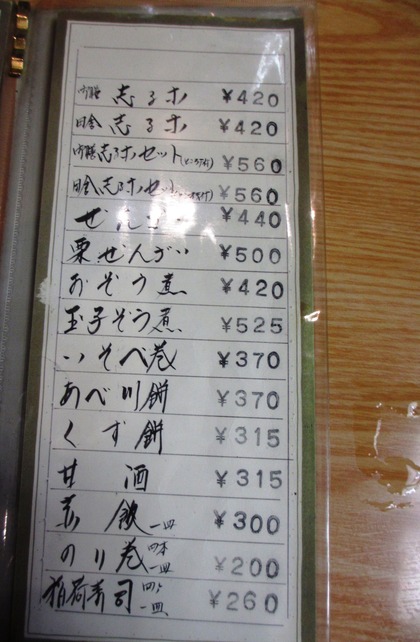 御膳 志るこ ¥420
田舎 志るこ ¥420
御膳志るこセット(ところてん付) ¥560
田舎志るこセット ¥560
ぜんざい ¥440
栗ぜんざい ¥500
おぞう煮 ¥420
玉子ぞう煮 ¥525
いそべ巻 ¥370
あべ川餅 ¥370
くず餅 ¥315
甘酒 ¥315
赤飯 一皿 ¥300
のり巻 四本 一皿 ¥200
稲荷寿司 四ケ 一皿 ¥260